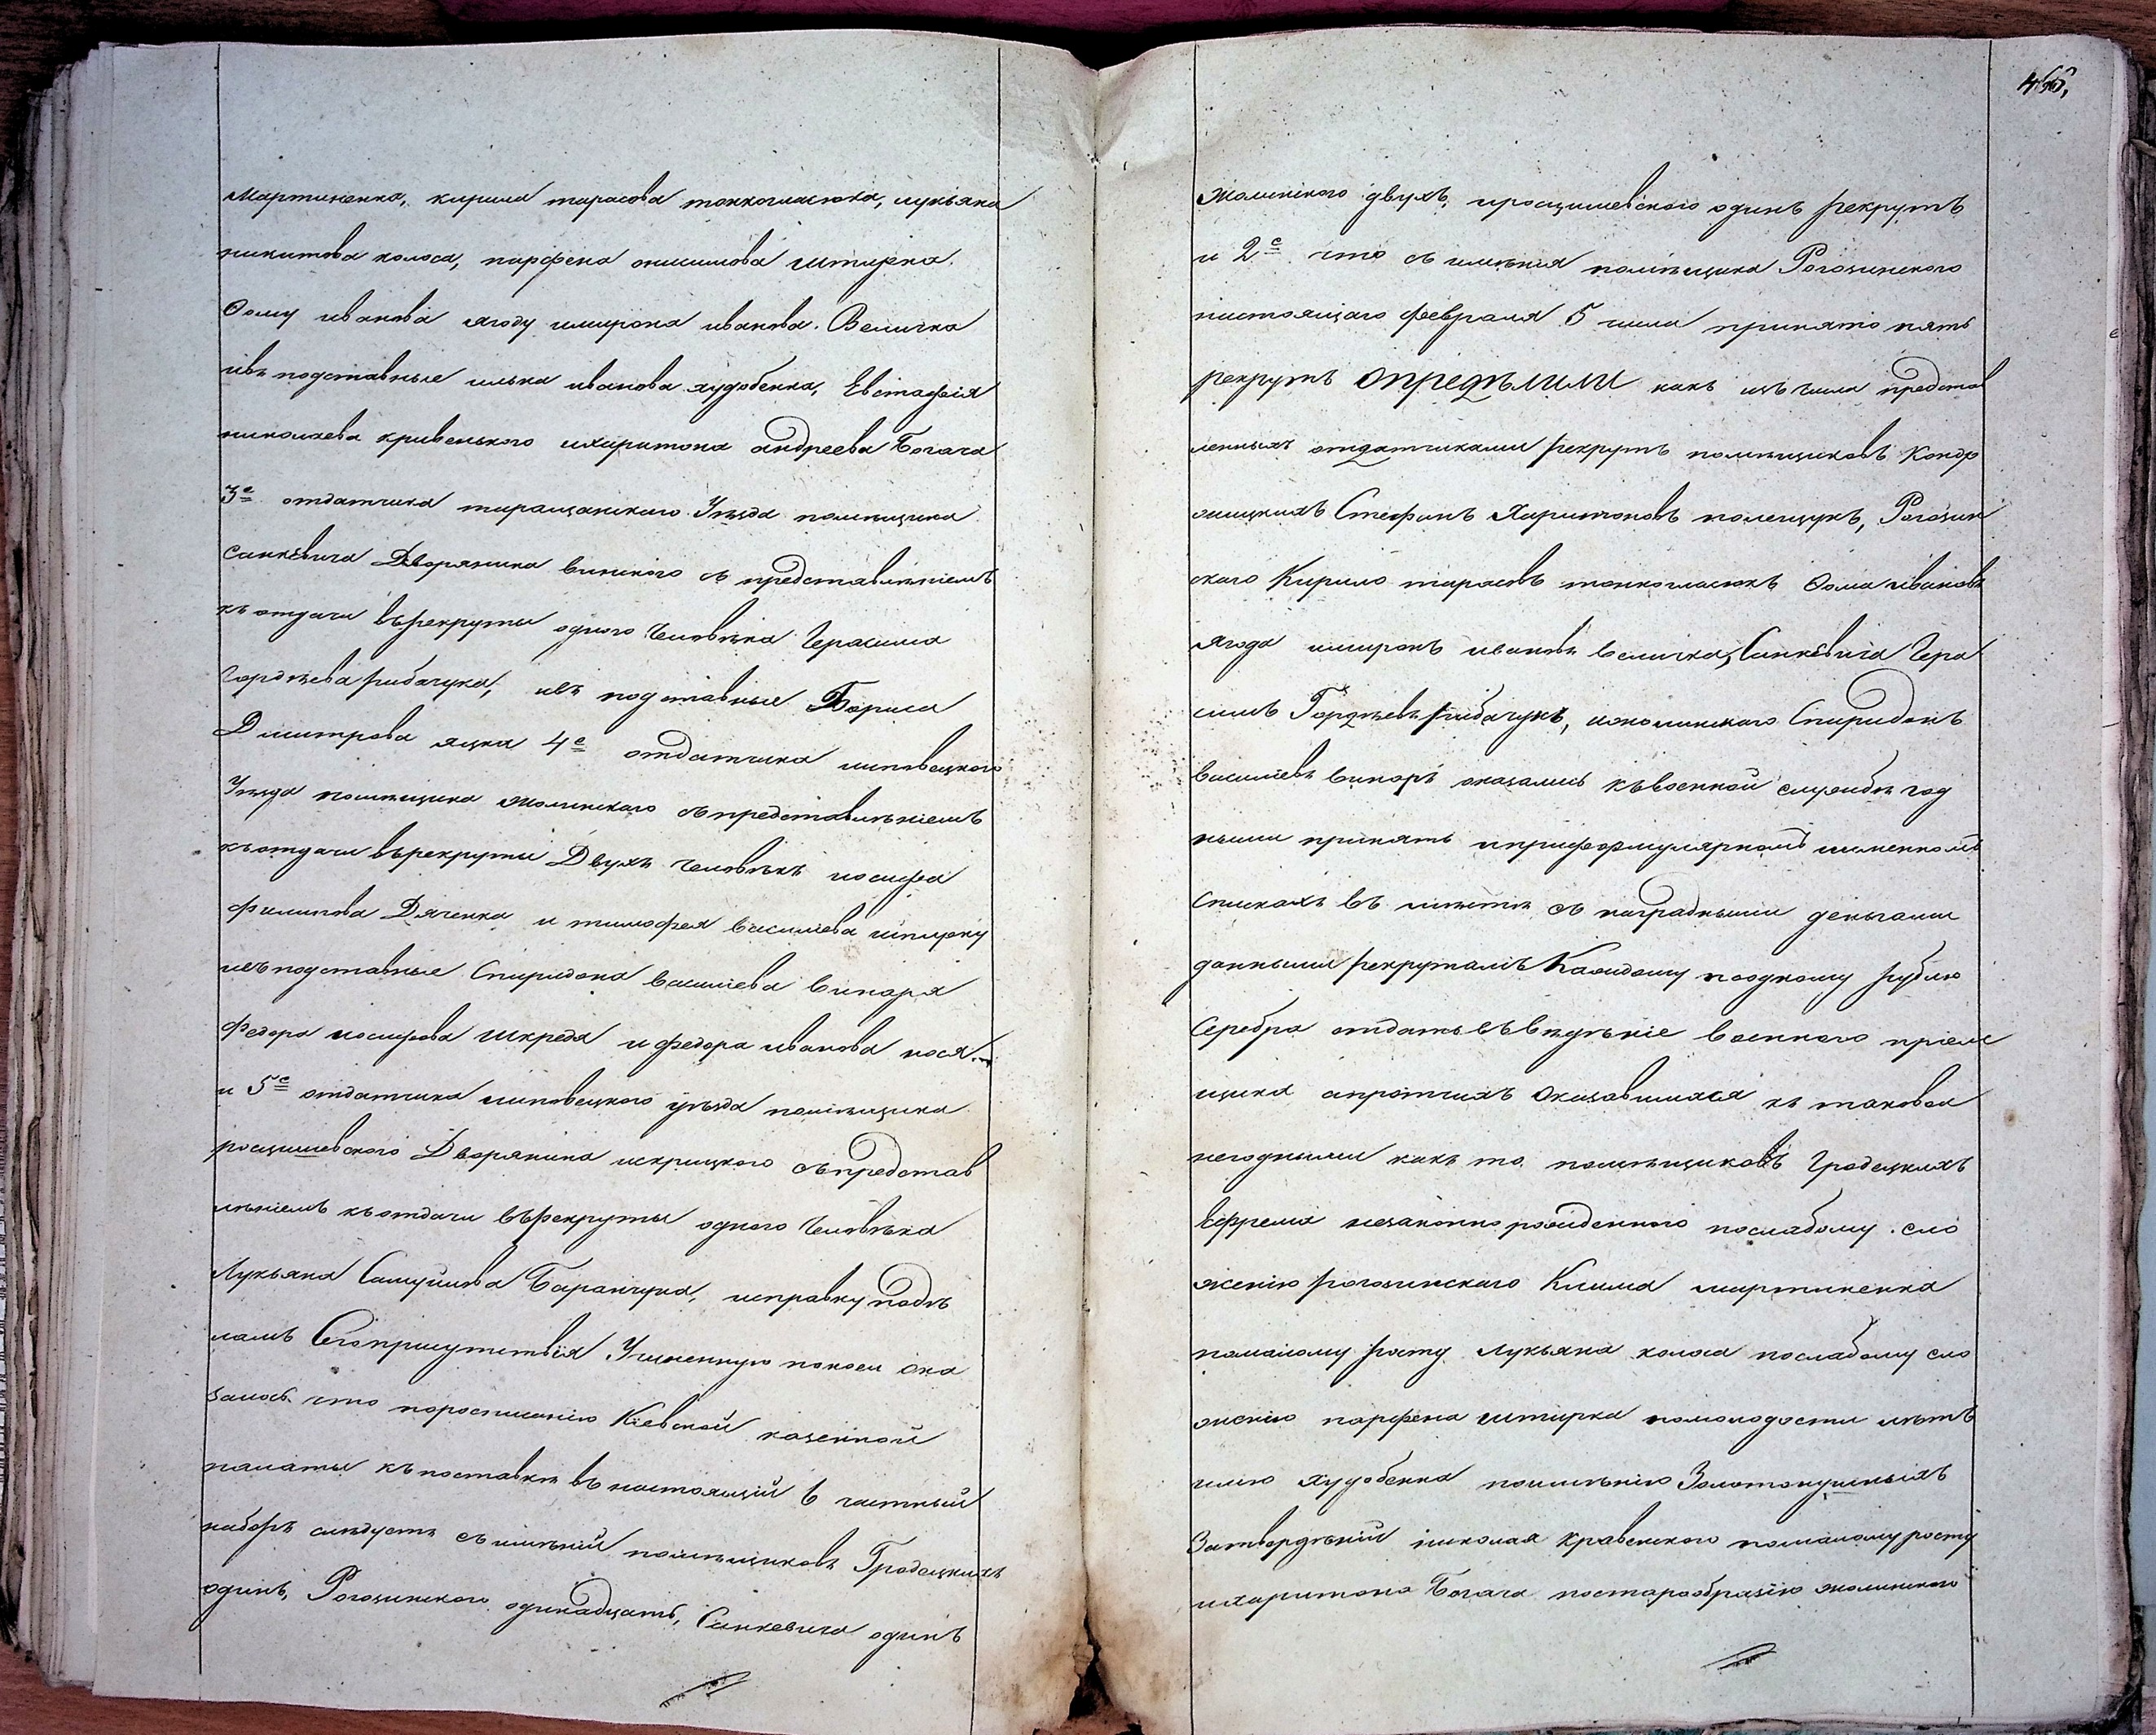 Мартиненка, кирила тарасова тонкогласюка, лукьяна
никитова колоса, парфена онисимова штырка.
Ѳому иванова ягоду имирона иванова. Величка
ивъ подставные илька иванова худобенка, Евстафія
николаева кривенького ихаритона андреева Богача
3е отдатчика таращанскаго Уѣзда помѣщика
Синкевича Дворянина винского съ представлѣніемъ
къ отдачи върекруты одного Человѣка Герасима
Гордѣева рибачука, ивъ подставные Бориса
Дмитрова яцка 4е отдатчика липовецкого
Уѣзда помѣщика жолинского съпредставлѣніемъ
къотдачи върекруты Двухъ человѣкъ иосифа
Филипова Дяченка и тимофея василіева шпирку
ивъподставные Спиридона василіева винаря
Федора иосифова шкреда и федора иванова нося
и 5е отдатчика липовецкого уѣзда помѣщика
росцишевского Дворянина искрицкого съпредстав
лѣніемъ къотдачи върекруты одного Человѣка
Лукьяна Самуйлова Баранчука, исправку подѣ
ламъ Сегоприсутствія Учиненную покоей ока
залось что поросписанію Кіевской казенной
палаты къпоставки въ настоящій 6 частный
наборъ слѣдуетъ съ имѣній помѣщиковъ Гродецкихъ
одинъ, Рогозинского одинадцать, Синкевича одинъ
466,
Жолинского двухъ, иросцишевского одинъ рекрутъ
и 2е что съ имѣнія помѣщика Рогозинского
настоящаго февраля 5 числа принято пять
рекрутъ опредѣлили какъ изъ числа представ
ленныхъ отдатчиками рекрутъ помѣщиковъ
Стефанъ Харитоновъ полещукъ, Рогозин
ского Кирило тарасовъ тонкогласюкъ Ѳома ивановъ
ягода имиронъ ивановъ величка, Синкевича Гера
симъ Гордѣевъ рибачукъ, ижолинского Спиридонъ
василіевъ винаръ оказались къвоенной службѣ год
ными принять иприформулярномъ именномъ
спискахъ въ мѣстѣ съ наградными деньгами
данными рекрутамъ Каждому поодному рублю
Серебра отдать въвѣдѣніе военного пріем
щика апротчихъ оказавшихся къ таковой
негодными какъ то помѣщиковъ Гродецкихъ
Ефрема незаконнорожденного послабому сло
женію рогозинского Клима мартиненка
помалому росту Лукьяна колоса послабому сло
женію парфена штирка помолодости лѣтъ
илью худобенка поимѣнію Золотонушныхъ
Затвердѣній николая кравенького помалому росту
ихаритона Богача постарообразію жолинского